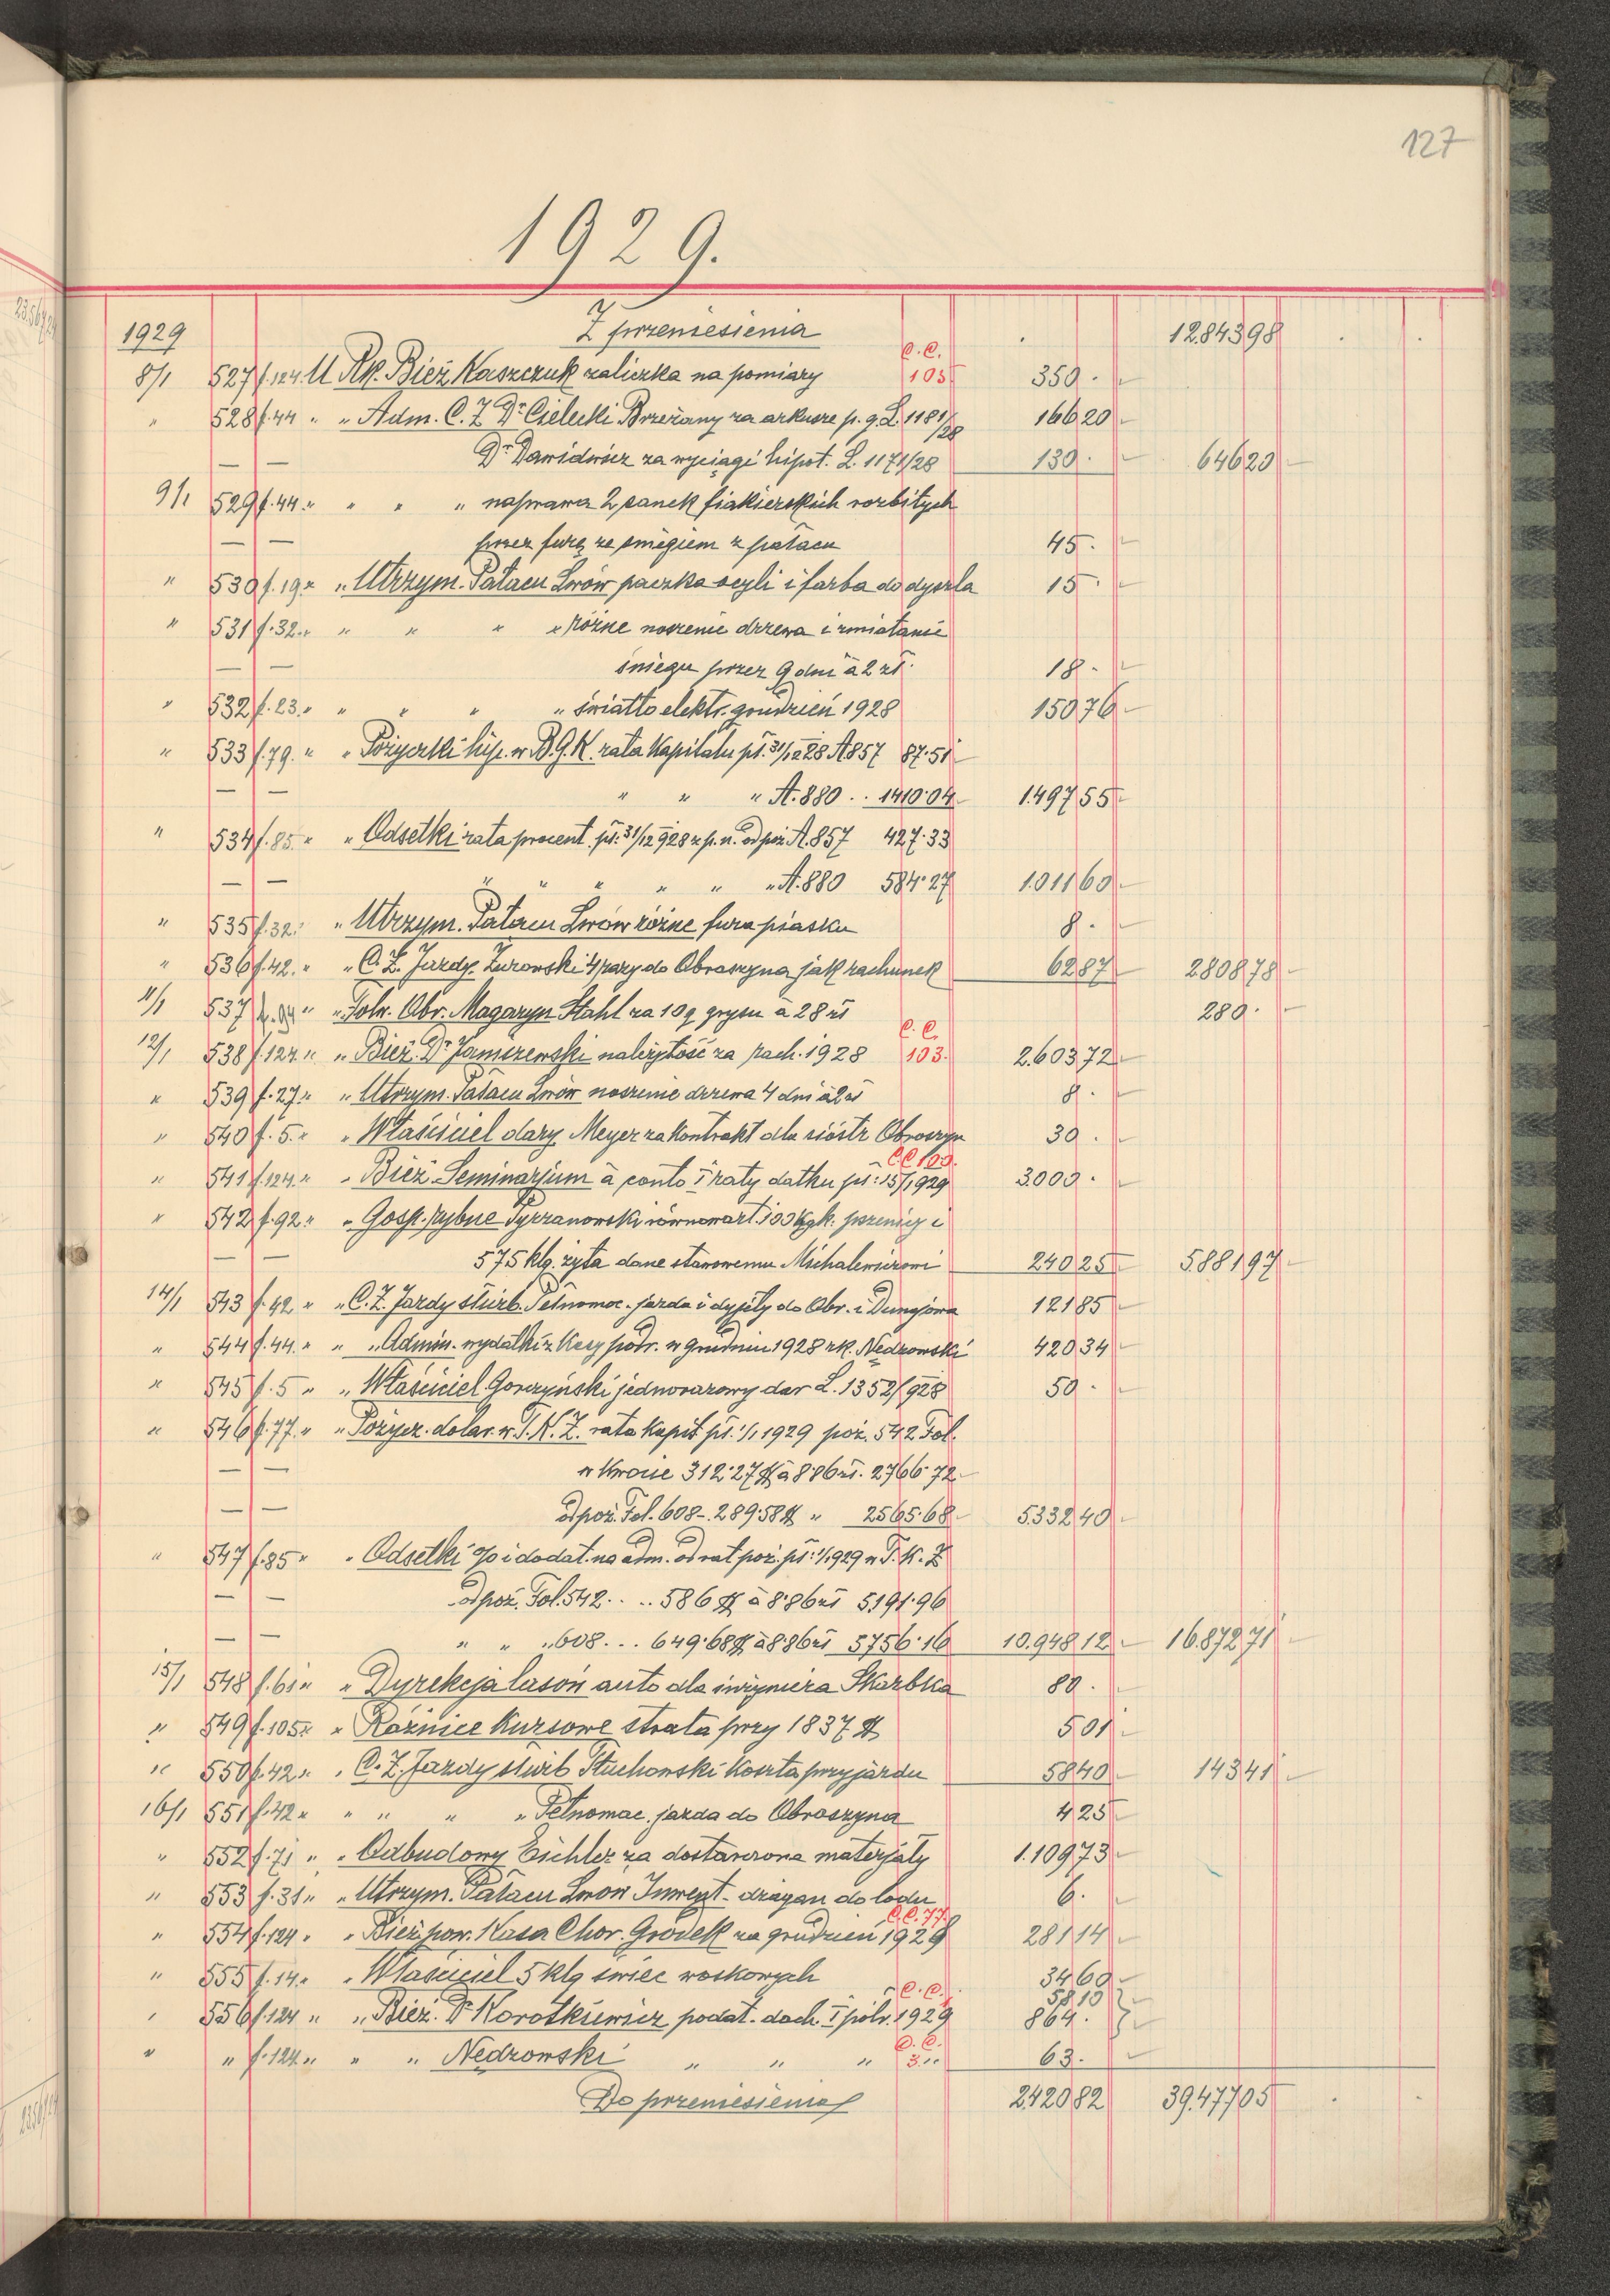 127
1929.
1929 Z przeniesienia 12.843 98
8/1 527 f.124. U Rk. Bież Kaszczuk zaliczka na pomiary C.C. 103 350 . -
" 528 f.44 " " Adm. C.Z Dr Cielecki Brzeżany za arkusze p. g. L. 1181/28 166 20 -
— — Dr Dawidwicz za wyciągi hipot. L. 1171/28 130 . - 646 20 -
9/1 529 f.44. " " " " naprawa 2 sanek fiakierskich rozbitych
— — przez furę ze śniegiem z pałacu 45 . -
" 530 f.19. " " Utrzym. Pałacu Lwów paczka i farba do dyszla 15 . -
" 531 f.32. " " " " " różne noszenie drzewa i zmiatanie
— — śniegu przez 9 dni à 2 zł. 18 . -
" 532 f.23. " " " " " światło elektr. grudzień 1928 150 76 -
" 533 f.79. " " Pożyczki hip. w B.G.K. rata Kapitału pł. 31/12 28 A.857 87.51
— — " " " A.880 .. 1410.04 1.497 55 -
" 534 f.85. " " Odsetki rata procent. pł. 31/12 928 z p. n. od poż A.857 427.33
— — " " " " " " A.880 584.27 1.011 60 -
" 535 f.32. " Utrzym. Pałacu Lwów różne fura piasku 8 . -
" 536 f.42. " " C.Z. Jazdy. Żurowski 4 razy do Obroszyna jak rachunek 62 87 - 2808 78 -
11/1 537 " " Folw. Obr. Magazyn Stahl za 10 q grysu à 28 zł 280 . -
12/1 538 f.124. " " Bież. Dr należytość za rach. 1928 C.C. 103. 2.603 72 -
" 539 f.27. " " Utrzym. Pałacu Lwów noszenie drzewa 4 dni à 2 zł 8 . -
" 540 f.5. " " Właściciel dary Meyer za Kontrakt dla sióstr Obroszyn 30 . -
" 541 f.124. " " Bież. Seminarjum à conto I raty datku pł: 15/1 1929 C.C 100. 3.000 . -
" 542 f.92. " " Gosp. rybne Tyrzanowski równowart. 100 klgk. pszenicy i
— — 575 klg. żyta dane stawowemu Michalewiczowi 240 25 - 5.881 97 -
14/1 543 f.42. " " C.Z. Jazdy służb. Pełnomoc. jazda i dyjety do Obr. i Dunajowa 121 85 -
" 544 f.44. " " " Admin. wydatki z Kasy podr. w grudniu 1928 rk. Nedzowski 420 34 -
" 545 f.5 " " Właściciel Gorczyński jednorazowy dar L. 1352/928 50 . -
" 546 f.77. " " Pożycz. dolar. w T.K.Z. rata Kapit pł. 1/1 1929 poż. 542 Fol.
— — w Kwocie 312.27 $ à 8.86 zł. 2766.72
— — od poż. Fol. 608 - 289.58 $ " 2565.68 5.332 40 -
" 547 f.85 " " Odsetki % i dodat. na adm. od rat poż. pł. 1/1 929 w T.K.Z
— — od poż. Fol. 542 .... 586 $ à 8.86 zł 5.191.96
— — " " " 608 ... 649.68 $ à 8.86 zł 5756.16 10.948 12 - 16.872 71 -
15/1 548 f.61 " " Dyrekcja lasów auto dla inżyniera Skarbka 80 . -
" 549 f.105. " " Różnice Kursowe strata przy 1837 $ 5 01 -
" 550 f.42 " " C.Z. Jazdy służb Stuchowski koszta przyjazdu 58 40 - 143 41 -
16/1 551 f.42 " " " " " Pełnomoc. jazda do Obroszyna 4 25 -
" 552 f.71 " " Odbudowy Eichler za dostarczone materjały 1.109 73 -
" 553 f.31 " " Utrzym. Pałacu Lwów Inwent. drągan do lodu 6 . -
" 554 f.124 " " Bież. pow. Kasa Chor. Gródek za grudzień 1929 C.C. 77. 281 14 -
" 555 f.14. " " Właściciel 5 klg świec woskowych 34 60 -
58 10 -
" 556 f.124 " " Bież. Dr Korotkiewicz podat. doch. I półr. 1929 C.C. 864 . -
" " f.124 " " " Nedzowski " " " C.C. 3 .. 63 . -
Do przeniesienia 2420 82 39.477 05 -